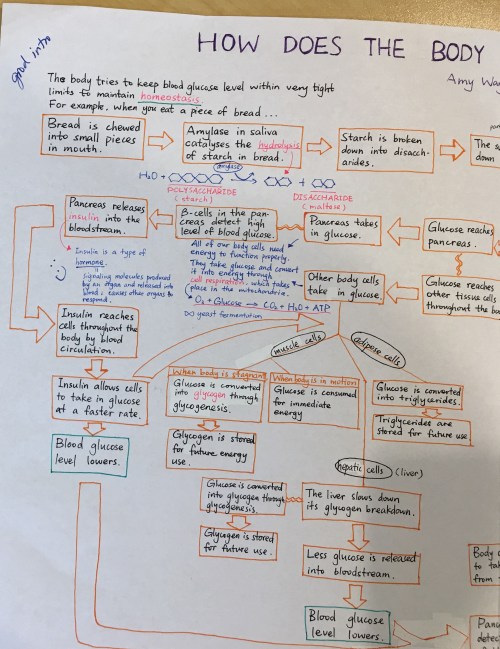 good intro
HOW DOES THE BODY
Amy Wa
The body tries to keep blood glucose level within very tight
limits to maintain homeostasis.
For example, when you eat a piece of bread ...
Bread is chewed
into small pieces
in mouth.
Amylase in saliva
catalyses the hydrolysis
of starch in bread.
Starch is broken
down into disacch-
arides.
The s
down
H₂O +
amylase
+
POLYSACCHARIDE
(starch)
DISACCHARIDE
(maltose)
Pancreas releases
insulin into the
bloodstream.
β-cells in the pan-
creas detect high
level of blood glucose.
Pancreas takes
in glucose.
Glucose reaches
pancreas.
Insulin is a type of
hormone.
Signaling molecules produced
by an organ and released into
blood; causes other organs to
respond.
All of our body cells need
energy to function properly.
They take glucose and convert
it into energy through
cell respiration, which takes
place in the mitochondria.
O₂ + Glucose → CO₂ + H₂O + ATP
yeast fermentation
Other body cells
take in glucose.
Glucose reaches
other tissue cells
throughout the bo
Insulin reaches
cells throughout the
body by blood
circulation.
muscle cells
adipose cells
Insulin allows cells
to take in glucose
at a faster rate.
When body is stagnant
Glucose is converted
into glycogen through
glycogenesis.
When body is in motion
Glucose is consumed
for immediate
energy
Glucose is converted
into triglycerides.
Triglycerides are
stored for future use
Blood glucose
level lowers.
Glycogen is stored
for future energy
use.
hepatic cells (liver)
Glucose is converted
into glycogen through
glycogenesis.
The liver slows down
its glycogen breakdown.
Glycogen is stored
for future use.
Less glucose is released
into bloodstream.
Body
to tak
from
Blood glucose
level lowers.
Panc
detec